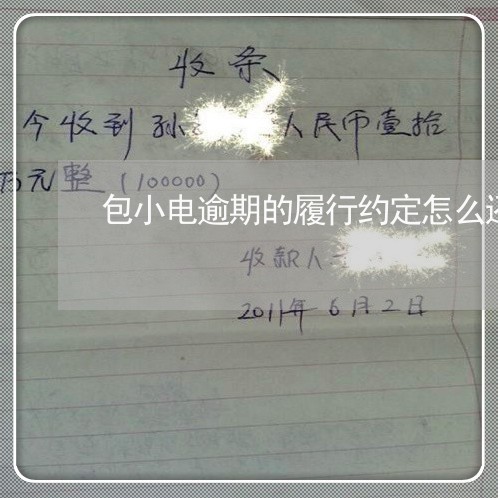 收条
今收到孙 人民币壹拾
万元整（100000）
包小电逾期的履行约定怎么还
收款人
2011年6月2日